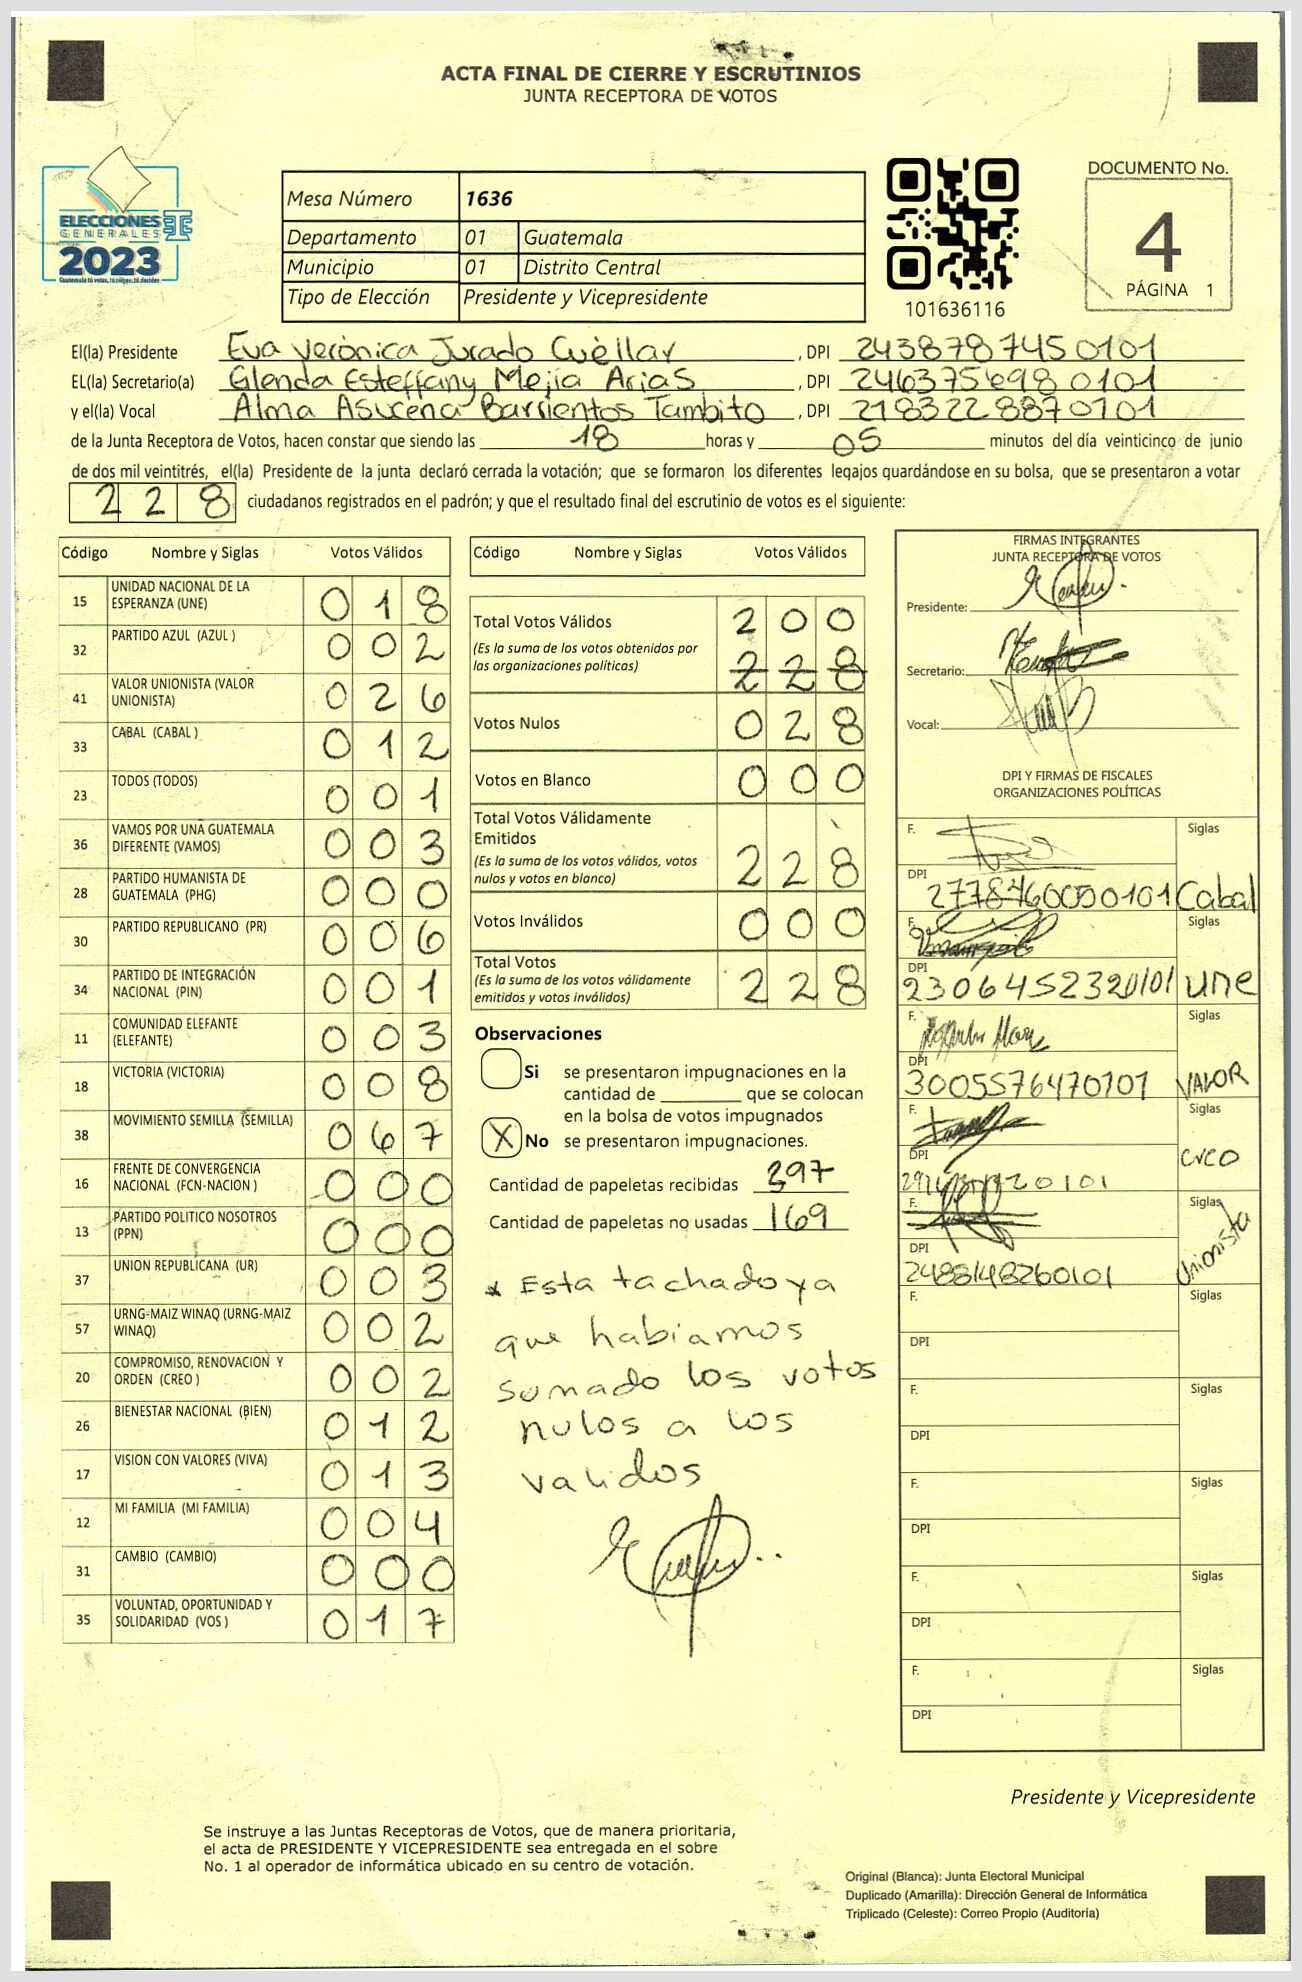 ACTA FINAL DE CIERRE Y ESCRUTINIOS
JUNTA RECEPTORA DE VOTOS
ELECCIONES
GENERALES
2023
Guatemala tú votas, tú eliges, tú decides
Mesa Número 1636
Departamento 01 Guatemala
Municipio 01 Distrito Central
Tipo de Elección Presidente y Vicepresidente
101636116
DOCUMENTO No.
4
PÁGINA 1
El(la) Presidente Eva Verónica Jurado Cuéllar , DPI 2438787450101
EL(la) Secretario(a) Glenda Esteffany Mejía Arias , DPI 2463756980101
y el(la) Vocal Alma Asucena Barrientos Tambito , DPI 2183228870101
de la Junta Receptora de Votos, hacen constar que siendo las 18 horas y 05 minutos del día veinticinco de junio
de dos mil veintitrés, el(la) Presidente de la junta declaró cerrada la votación; que se formaron los diferentes legajos guardándose en su bolsa, que se presentaron a votar
228 ciudadanos registrados en el padrón; y que el resultado final del escrutinio de votos es el siguiente:
Código Nombre y Siglas Votos Válidos
15 UNIDAD NACIONAL DE LA ESPERANZA (UNE) 018
32 PARTIDO AZUL (AZUL ) 002
41 VALOR UNIONISTA (VALOR UNIONISTA) 026
33 CABAL (CABAL ) 012
23 TODOS (TODOS) 001
36 VAMOS POR UNA GUATEMALA DIFERENTE (VAMOS) 003
28 PARTIDO HUMANISTA DE GUATEMALA (PHG) 000
30 PARTIDO REPUBLICANO (PR) 006
34 PARTIDO DE INTEGRACIÓN NACIONAL (PIN) 001
11 COMUNIDAD ELEFANTE (ELEFANTE) 003
18 VICTORIA (VICTORIA) 008
38 MOVIMIENTO SEMILLA (SEMILLA) 067
16 FRENTE DE CONVERGENCIA NACIONAL (FCN-NACION ) 000
13 PARTIDO POLITICO NOSOTROS (PPN) 000
37 UNION REPUBLICANA (UR) 003
57 URNG-MAIZ WINAQ (URNG-MAIZ WINAQ) 002
20 COMPROMISO, RENOVACION Y ORDEN (CREO ) 002
26 BIENESTAR NACIONAL (BIEN) 012
17 VISION CON VALORES (VIVA) 013
12 MI FAMILIA (MI FAMILIA) 004
31 CAMBIO (CAMBIO) 000
35 VOLUNTAD, OPORTUNIDAD Y SOLIDARIDAD (VOS ) 017
Código Nombre y Siglas Votos Válidos
Total Votos Válidos 200
(Es la suma de los votos obtenidos por las organizaciones políticas) 228
Votos Nulos 028
Votos en Blanco 000
Total Votos Válidamente Emitidos
(Es la suma de los votos válidos, votos nulos y votos en blanco) 228
Votos Inválidos 000
Total Votos
(Es la suma de los votos válidamente emitidos y votos inválidos) 228
Observaciones
Si se presentaron impugnaciones en la
cantidad de que se colocan
en la bolsa de votos impugnados
X No se presentaron impugnaciones.
Cantidad de papeletas recibidas 397
Cantidad de papeletas no usadas 169
* Esta tachado ya
que habiamos
sumado los votos
nulos a los
validos
FIRMAS INTEGRANTES
JUNTA RECEPTORA DE VOTOS
Presidente:
Secretario:
Vocal:
DPI Y FIRMAS DE FISCALES
ORGANIZACIONES POLÍTICAS
F. Siglas
DPI 2778760050101 Cabal
F. Siglas
DPI 2306452320101 une
F. Siglas
DPI 3005576470101 VALOR
F. Siglas
DPI creo
F. Siglas
DPI 2488148260101 Unionista
F. Siglas
DPI
F. Siglas
DPI
F. Siglas
DPI
F. Siglas
DPI
F. Siglas
DPI
Presidente y Vicepresidente
Se instruye a las Juntas Receptoras de Votos, que de manera prioritaria,
el acta de PRESIDENTE Y VICEPRESIDENTE sea entregada en el sobre
No. 1 al operador de informática ubicado en su centro de votación.
Original (Blanca): Junta Electoral Municipal
Duplicado (Amarilla): Dirección General de Informática
Triplicado (Celeste): Correo Propio (Auditoría)